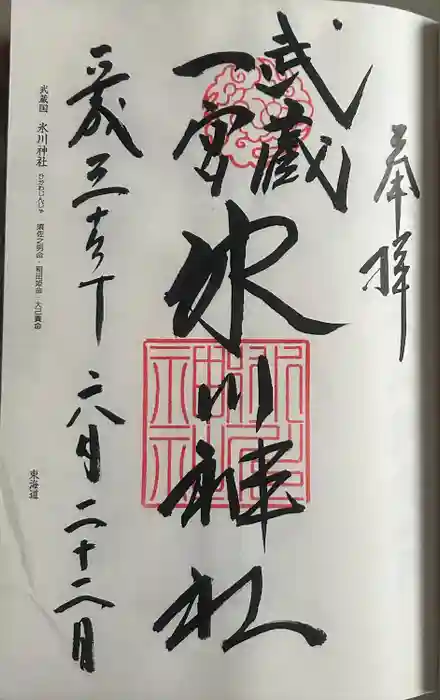 奉拝
武蔵
一宮
氷川神社
平成三十年六月二十二日
武蔵国 氷川神社 ひかわじんじゃ 須佐之男命・稲田姫命・大己貴命
東海道